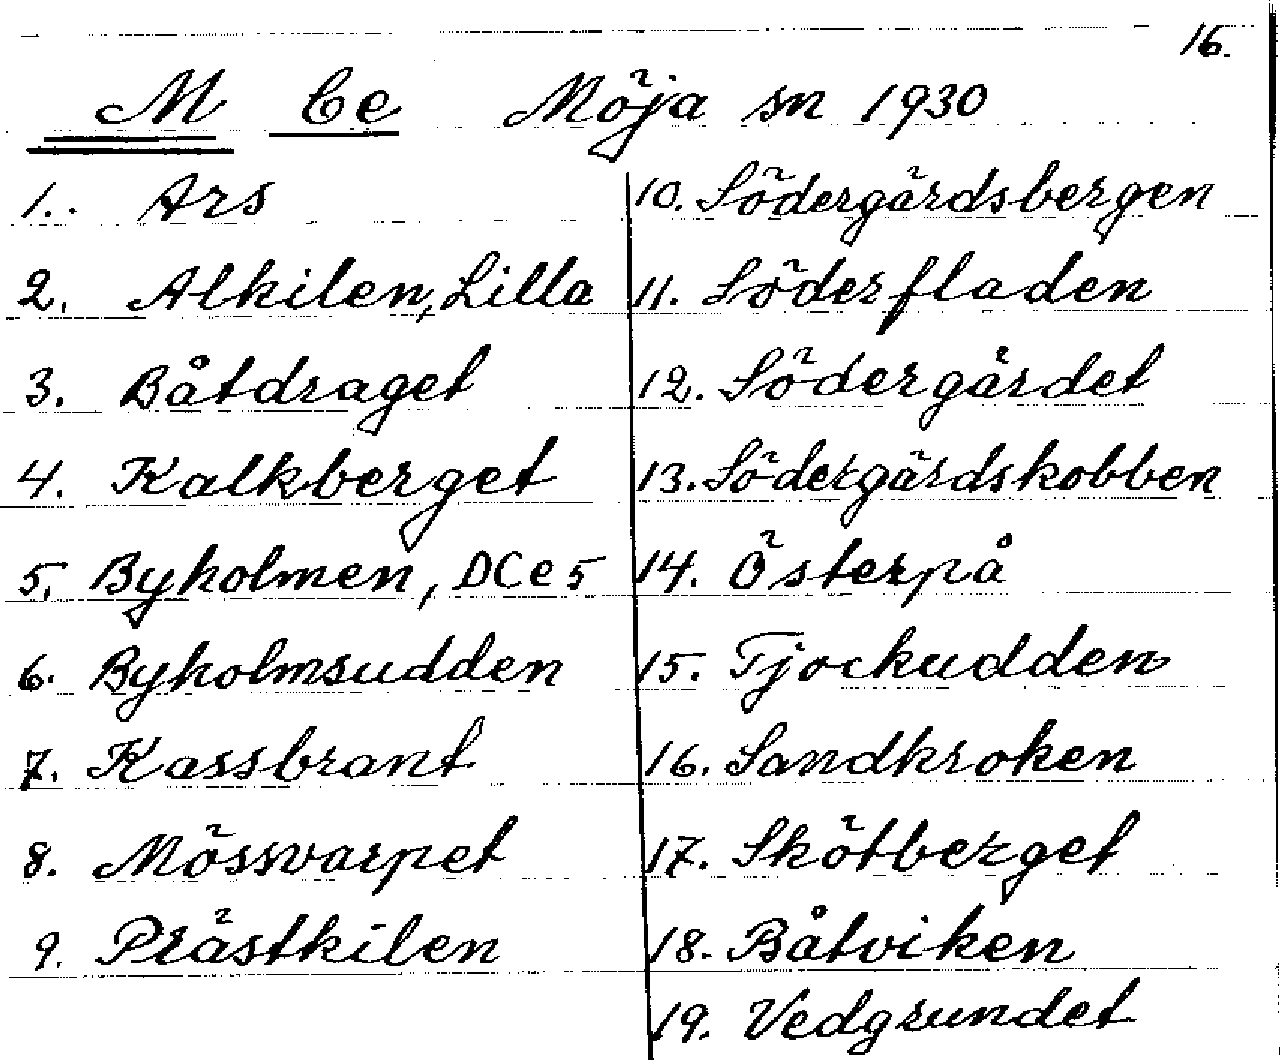 16.
M Ce Möja sn 1930
1. Ars
2. Alkilen, Lilla
3. Båtdraget
4. Kalkberget
5. Byholmen, DCe5
6. Byholmsudden
7. Kassbrant
8. Mössvarpet
9. Prästkilen
10. Södergårdsbergen
11. Söderfladen
12. Södergårdet
13. Södergårdskobben
14. Österpå
15. Tjockudden
16. Sandkroken
17. Skötberget
18. Båtviken
19. Vedgrundet